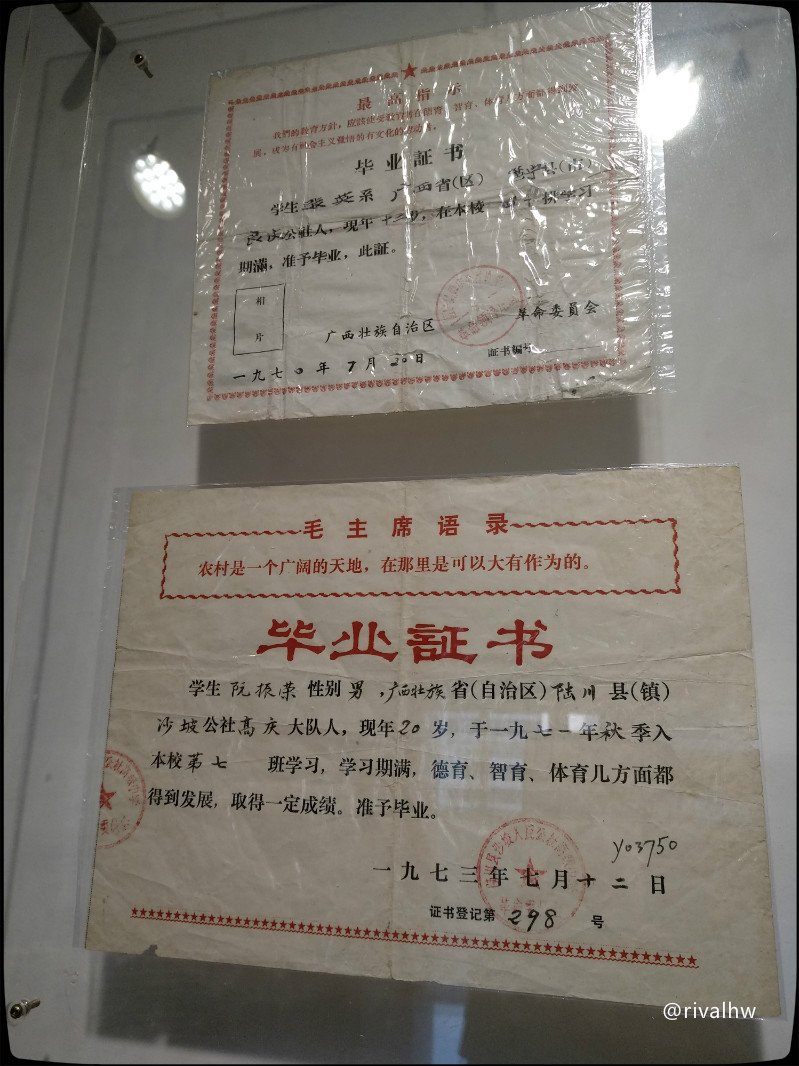 最高指示
我們的教育方針，应該使受教育者在德育、智育、体育几方面都得到发
展，成为有社会主义覺悟的有文化的劳动者。
毕业証书
学生 英系 广西省(区) 县(市)
良庆公社人，现年十三岁，在本校 学习
期滿，准予毕业，此証。
相
片
广西壮族自治区 革命委员会
证书编号
一九七〇年7月20日
毛主席语录
农村是一个广阔的天地，在那里是可以大有作为的。
毕业証书
学生阮振荣性别男，广西壮族省(自治区)陆川县(镇)
沙坡公社高庆大队人，现年20岁，于一九七一年秋季入
本校第七 班学习，学习期满，德育、智育、体育几方面都
得到发展，取得一定成绩。准予毕业。
y03750
一九七三年七月十二日
证书登记第298号
@rivalhw